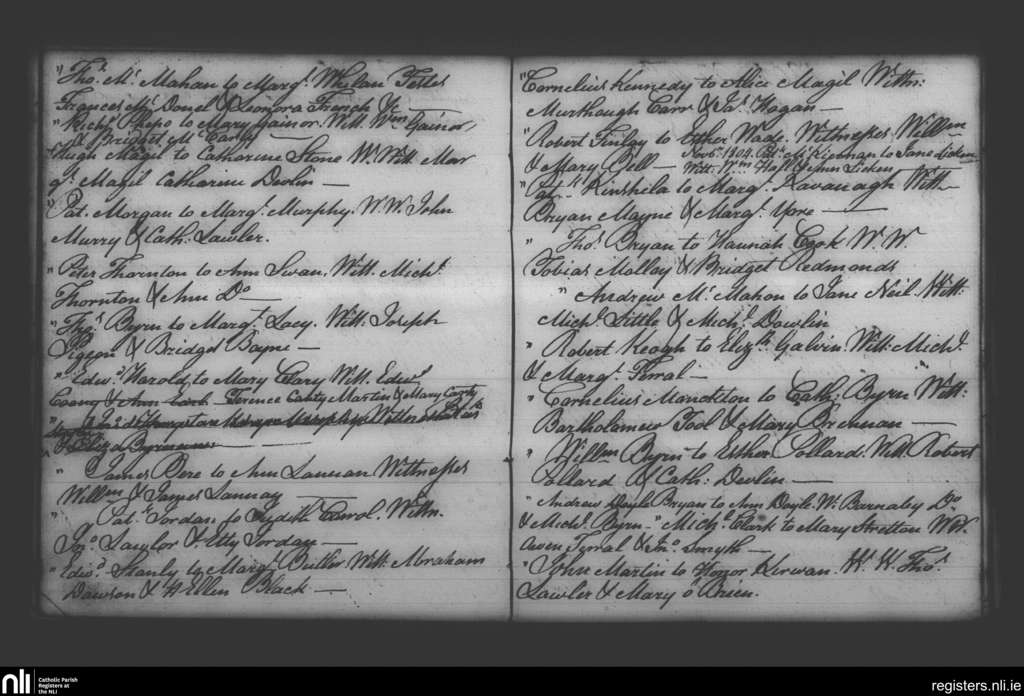 " Thos. Mc. Mahon to Margt. Whelan Testes
Frances Mc. Donel & Leonora French &c —
" Richd. Phepo to Mary Gainor. Witt. Wm. Gainor,
& Bridget Mc Canny —
" Hugh Magil to Catharine Stone W. Witt Mar
gt. Magil Catharine Devlin —
" Pat. Morgan to Margt. Murphy. W.W. John
Murry & Cath: Lawler.
" Peter Thornton to Ann Swan. Witt. Michl.
Thornton & Ann Do —
" Thos. Byrn to Margt. Lacy. Witt. Joseph
Pigeon & Bridget Bayne —
" Edwd. Harold to Mary Clary Witt. Edwd.
& Ann Terence Canty Martin & Mary Canty
& Eliza
" James Bere to Ann Launan Witnesses
Willm & James Launay —
" Patk. Jordan to Judith Carrol. Wittn.
Jno. Taylor & Etty Jordan —
" Edwd. Stanly to Margt. Butler Witt. Abraham
Dawson & H Ellen Black —
" Cornelius Kennedy to Alice Magil Wittn:
Murthaugh Carr & Jas. Hogan —
" Robert Finlay to Esther Wade. Witnesses Willm
& Mary Bell — Novbr. 1804. Patk. Mc Kiernan to Jane Dicken
Witt. Wm. & Ann Dicken
" Patk. Kinshela to Margt. Kavanagh Witt
Bryan Mayne & Margt. Yore —
" Thos. Bryan to Hannah Cook W.W
Tobias Mallay & Bridget Redmonds
" Andrew Mc. Mahon to Jane Neil. Witt:
Michl. Little & Michl. Dowlin
" Robert Keogh to Elizth. Galvin Witt: Michl.
& Margt. Tirral —
" Cornelius to Cath: Byrn Witt:
Bartholamew Tool & Mary Brennan —
" Willm Byrn to Esther Collard. Witt. Robert
Collard & Cath: Devlin —
" Andrew Doyle Bryan to Ann Doyle W. Barnaby Do
& Michl. Byrn — " Michl. Clark to Mary Stretton Witt
Owen Tirral & Jno. Smyth —
" John Martin to Honor Kirwan. W. W. Thos.
Lawler & Mary o Brien.
nli Catholic Parish
Registers at
the NLI
registers.nli.ie